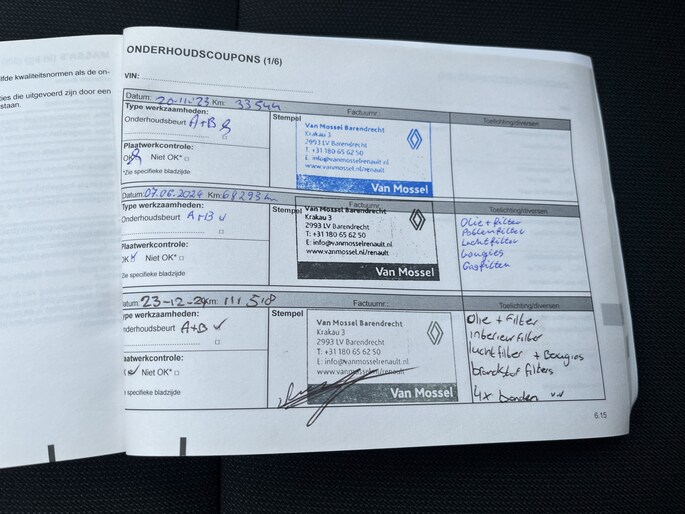 lfde kwaliteitsnormen als de on-
ies die uitgevoerd zijn door een
staan.
ONDERHOUDSCOUPONS (1/6)
VIN:
Datum: 20-11-'23 Km: 33544
Factuurnr.:
Toelichting/diversen
Type werkzaamheden:
Onderhoudsbeurt A+B
Plaatwerkcontrole:
OK Niet OK*
*Zie specifieke bladzijde
Stempel
Van Mossel Barendrecht
Krakau 3
2993 LV Barendrecht
T: +31 180 65 62 50
E: info@vanmosselrenault.nl
www.vanmosselrenault.nl/renault
Van Mossel
Datum: 07.06.2024 Km: 68293 km
Factuurnr.:
Toelichting/diversen
Type werkzaamheden:
Onderhoudsbeurt A+B
Plaatwerkcontrole:
OK Niet OK*
*Zie specifieke bladzijde
Stempel
Van Mossel Barendrecht
Krakau 3
2993 LV Barendrecht
T: +31 180 65 62 50
E: info@vanmosselrenault.nl
www.vanmossel.nl/renault
Van Mossel
Olie + filter
Pollenfilter
Luchtfilter
bougies
Gasfilter
atum: 23-12-24 Km: 111.518
Factuurnr.:
Toelichting/diversen
ype werkzaamheden:
nderhoudsbeurt A+B
aatwerkcontrole:
Niet OK*
e specifieke bladzijde
Stempel
Van Mossel Barendrecht
Krakau 3
2993 LV Barendrecht
T: +31 180 65 62 50
E: info@vanmosselrenault.nl
www.vanmossel.nl/renault
Van Mossel
Olie + Filter
interieur filter
luchtfilter + Bougies
brandstof filters
4x banden
6.15